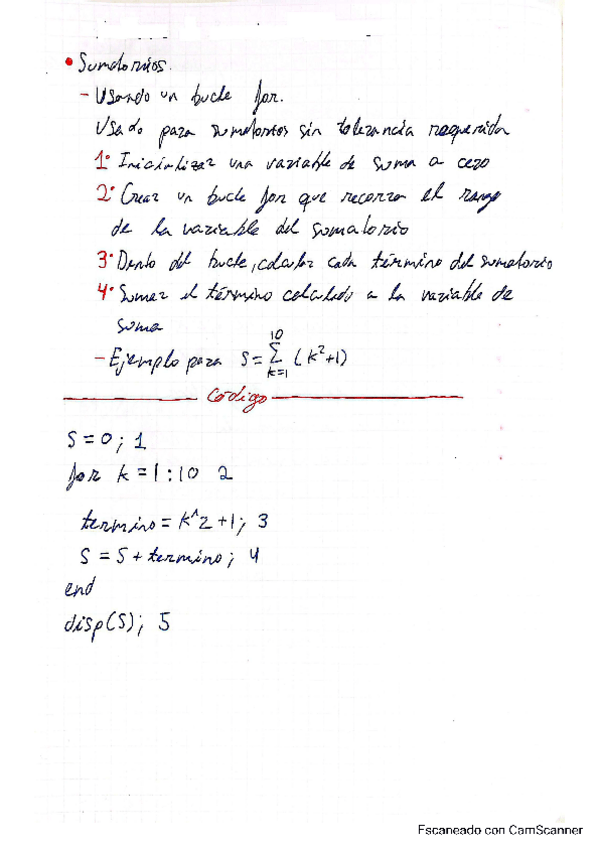 • Sumatorios.
- Usando un bucle for.
Usado para sumatorios sin tolerancia requerida
1º Inicializar una variable de suma a cero
2º Crear un bucle for que recorra el rango
de la variable del sumatorio
3º Dento del bucle, calcular cada término del sumatorio
4º Sumar el término calculado a la variable de
suma
- Ejemplo para S = ∑_{k=1}^{10} (k²+1)
Código
S = 0; 1
for k = 1:10 2
termino = k^2 + 1; 3
S = S + termino; 4
end
disp(S); 5
Escaneado con CamScanner